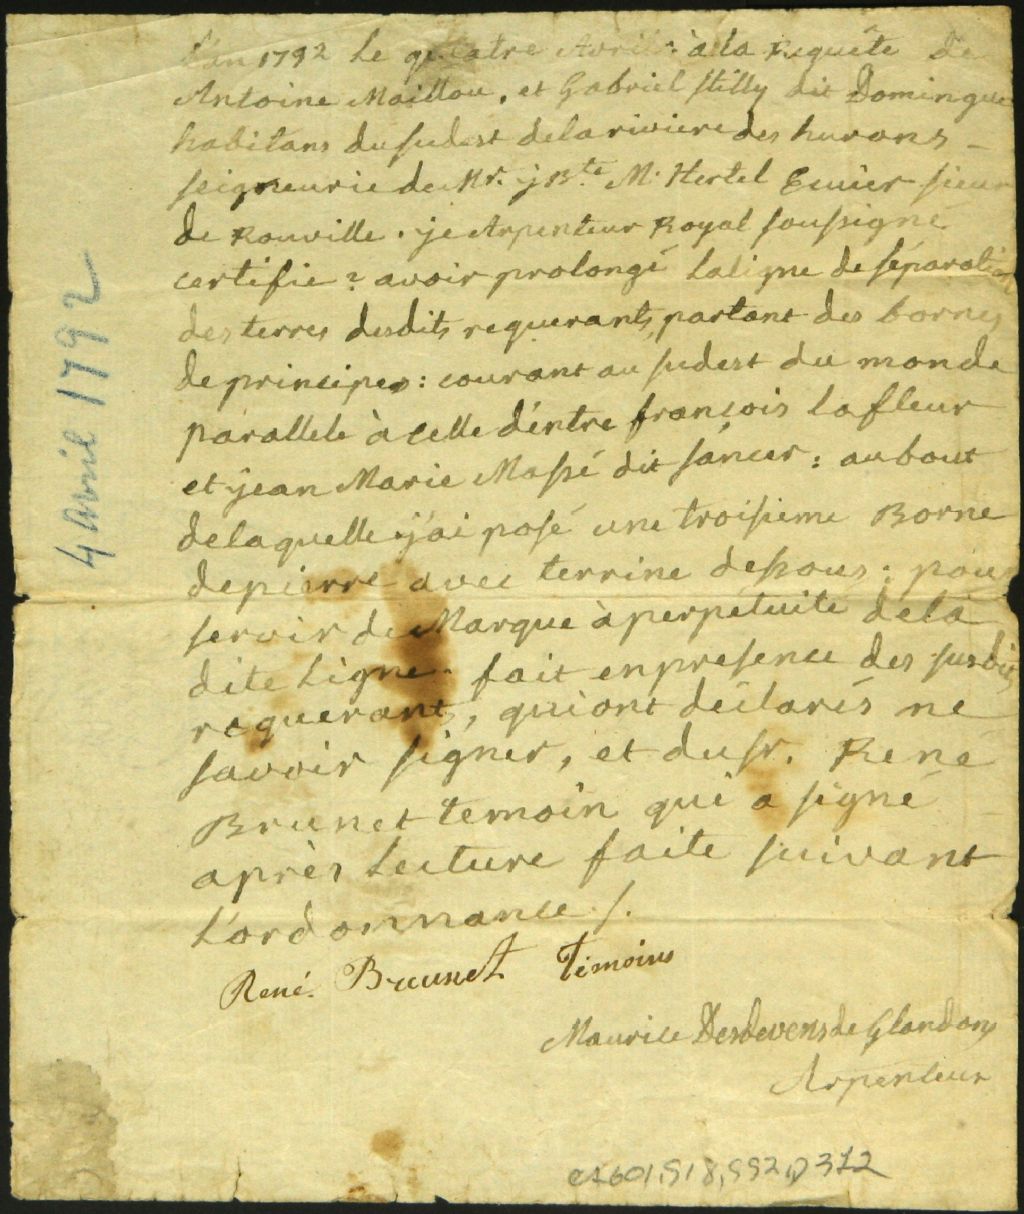 L'an 1792 Le quatre Avril : à la Requête De
Antoine Maillou, et Gabriel Stilly dit Domingue
habitans du sudest de la riviere des hurons -
seigneurie de Mr. j Bte. M. Hertel Ecuier sieur
de Rouville. je Arpenteur Royal soussigné
certifie : avoir prolongé La ligne de séparation
des terres desdits requerants, partant des bornes
de principes : courant au sudest du monde
parallele à celle d'entre françois Lafleur
et jean Marie Massé dit sancer : au bout
de laquelle j'ai posé une troisieme Borne
de pierre avec terrine dessous : pour
servir de Marque à perpétuité de la
dite Ligne. fait en presence des susdits
requerants, qui ont déclarés ne
savoir signer, et du sr. René
Brunet temoin qui a signé
après Lecture faite suivant
L'ordonnance /.
René. Brunet Témoins
Maurice Desdevens de Glandons
Arpenteur
4 avril 1792
CA601,S18,SS2,D372